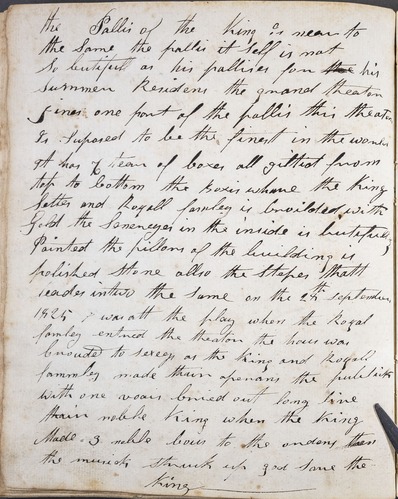 the Pallis of the King is near to
the same the pallis it self is not
so butifull as his pallises for his
summer Residens the grand theator
jines one part of the pallis this theator
is suposed to be the finest in the world
it has 7 tear of boxes all gilted from
top to bottom the boxes whare the King
setes and Royall famley is broilded with
Gold the seneryes in the inside is butifuly
Painted the pillors of the building is
polished stone allso the stepes thatt
leades intwo the same on the 25th september
1825 i was att the play when the Royal
famley entred the theator the hous was
crouded to exces as the King and Royall
fammley made thair aperans the publick
with one voais cried out long live
thair noble King when the King
Made 3 noble bous to the
the musick struck up god save the
King